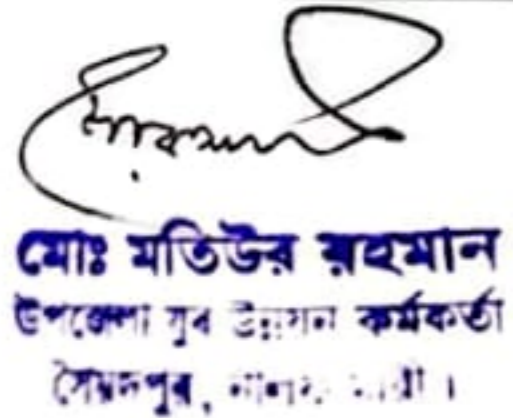 মোঃ মতিউর রহমান
উপজেলা যুব উন্নয়ন কর্মকর্তা
সৈয়দপুর, নীলফামারী।